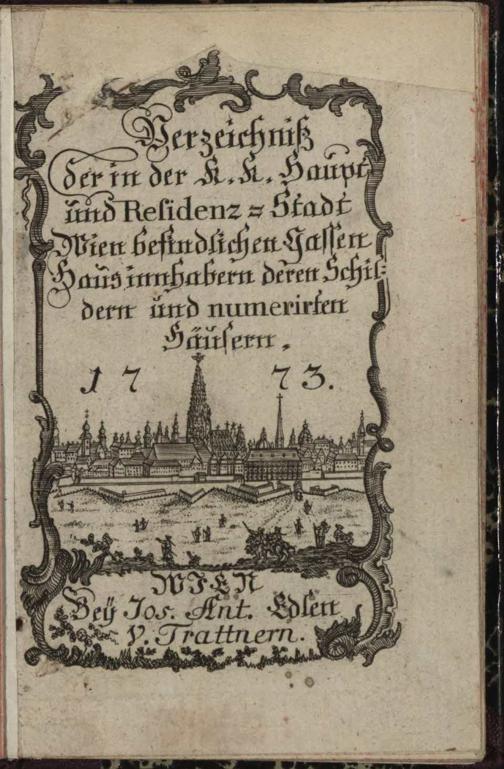 Verzeichniß
der in der K. K. Haupt
und Residenz = Stadt
Wien befindlichen Gassen
Hausinnhabern deren Schil=
dern und numerirten
Häusern.
17 73.
WIEN
Beÿ Jos. Ant. Edlen
V. Trattnern.